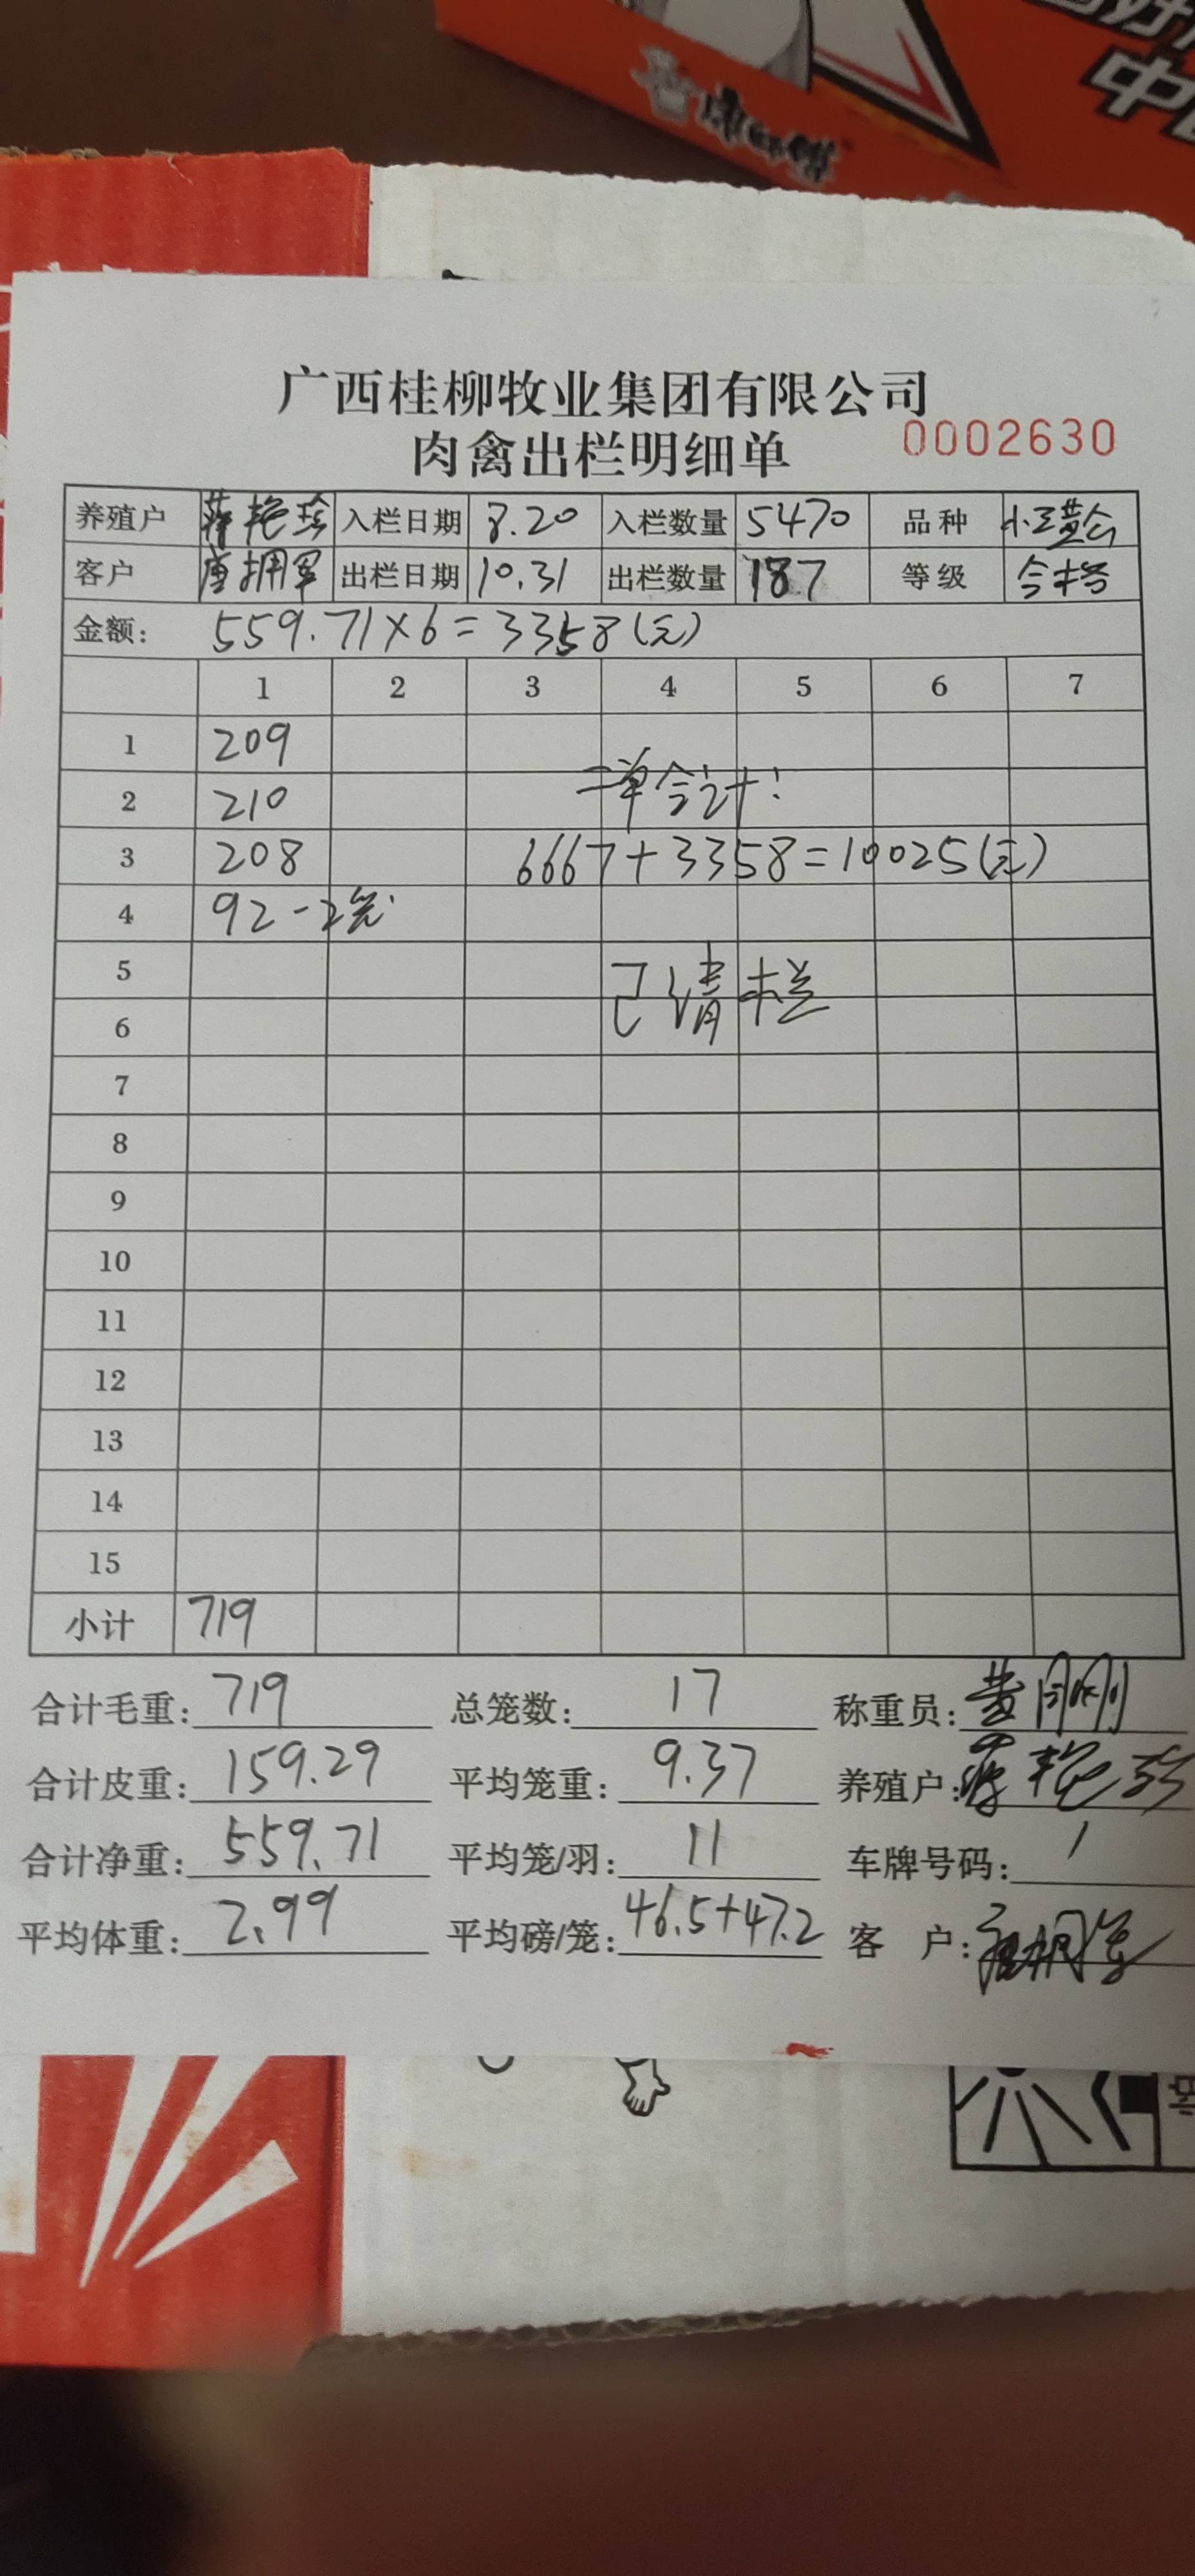 中
康师傅
广西桂柳牧业集团有限公司
肉禽出栏明细单
0002630
养殖户 蒋艳珍 入栏日期 8.20 入栏数量 5470 品种
客户 唐拥军 出栏日期 10.31 出栏数量 187 等级 合格
金额: 559.71×6=3358(元)
1 2 3 4 5 6 7
1 209
2 210 二单合计:
3 208 6667+3358=10025(元)
4 92-2笼
5 已清栏
6
7
8
9
10
11
12
13
14
15
小计 719
合计毛重: 719 总笼数: 17 称重员:
合计皮重: 159.29 平均笼重: 9.37 养殖户: 蒋艳珍
合计净重: 559.71 平均笼/羽: 11 车牌号码: /
平均体重: 2.99 平均磅/笼: 46.5+47.2 客 户: 唐拥军